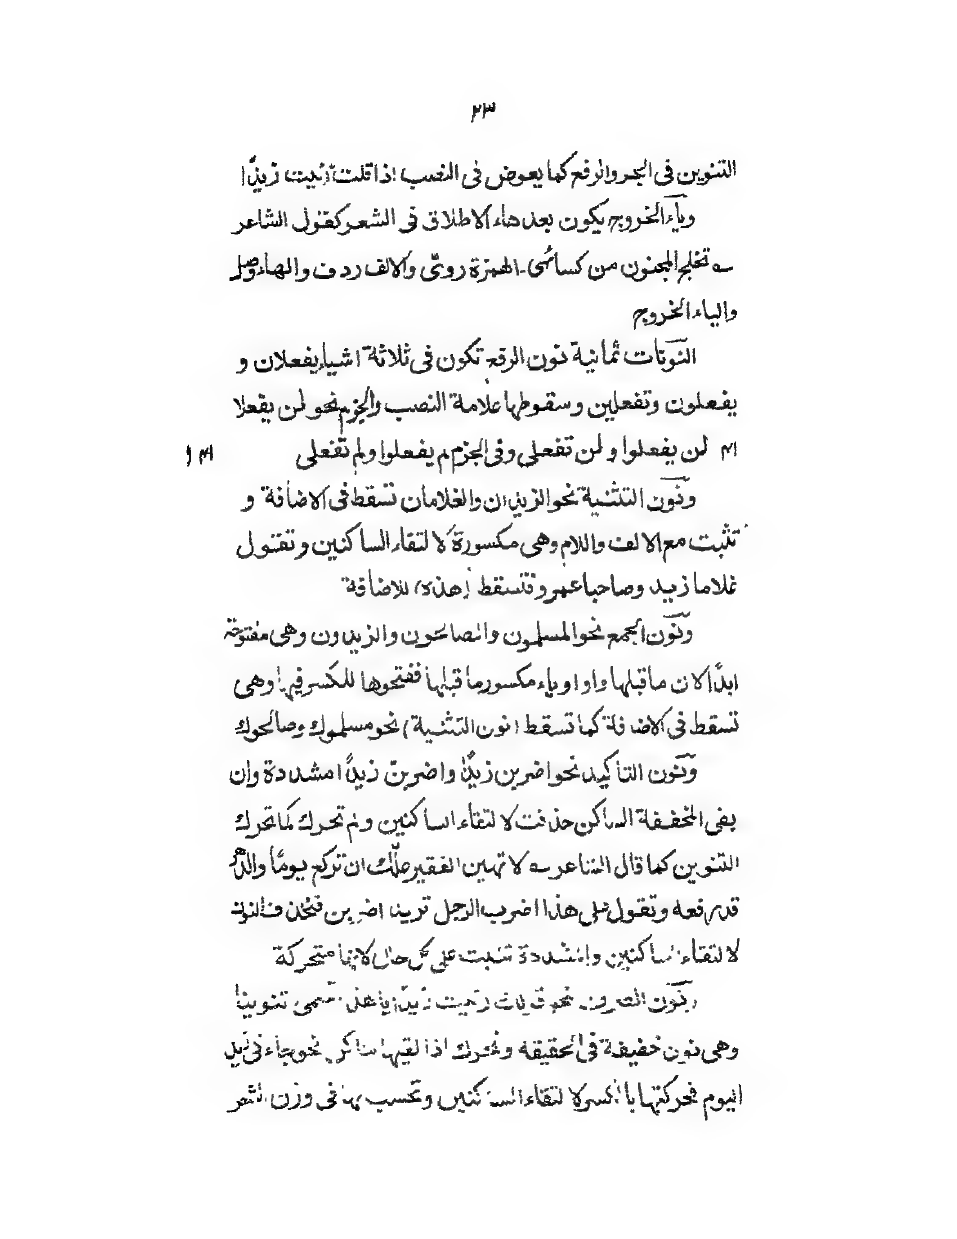 ٢٣
التنوين في الجر والرفع كما يعوض في النصب اذا قلت رئيت زيدًا
وياء الخروج يكون بعد هاء الاطلاق في الشعر كقول الشاعر
تخلج المجنون من كسائهى الهمزة روىّ والالف ردف والهاء وصل
والياء الخروج
النونات ثمانية نون الرفع تكون في ثلاثة اشياء يفعلان و
يفعلون وتفعلين وسقوطها علامة النصب والجزم نحو لن يفعلا
لن يفعلوا ولن تفعلى وفى الجزم لم يفعلوا ولم تفعلى
ونون التثنية نحو الزيدان والغلامان تسقط في الاضافة و
تثبت مع الالف واللام وهى مكسورة لالتقاء الساكنين وتقول
غلاما زيد وصاحبا عمرو فتسقط (هذه) للاضافة
ونون الجمع نحو المسلمون والصالحون والزيدون وهى مفتوحة
ابدًا لان ما قبلها واو او ياء مكسور ما قبلها ففتحوها للكسر فيها وهى
تسقط في الاضافة كما تسقط (نون التثنية) نحو مسلموك وصالحوك
ونون التأكيد نحو اضربن زيدًا واضربنّ زيدًا مشددة وان
يفى المخففة الساكن حذفت لالتقاء الساكنين ولم تحرك كما تحرك
التنوين كما قال الشاعر لا تهين الفقير علّك ان تركع يومًا والدهر
قد رفعه وتقول على هذا اضرب الرجل تريد اضربن فتحذف النون
لالتقاء الساكنين والمشددة تثبت على كل حال لانها متحركة
ونون الصرف نحو قولك رئيت زيدًا يا هذا تسمى تنوينا
وهى نون خفيفة في الحقيقة وتحرك اذا لقيها ساكن نحو جاءنى زيد
اليوم فحركتها بالكسر لالتقاء الساكنين وتحسب بها في وزن الشعر